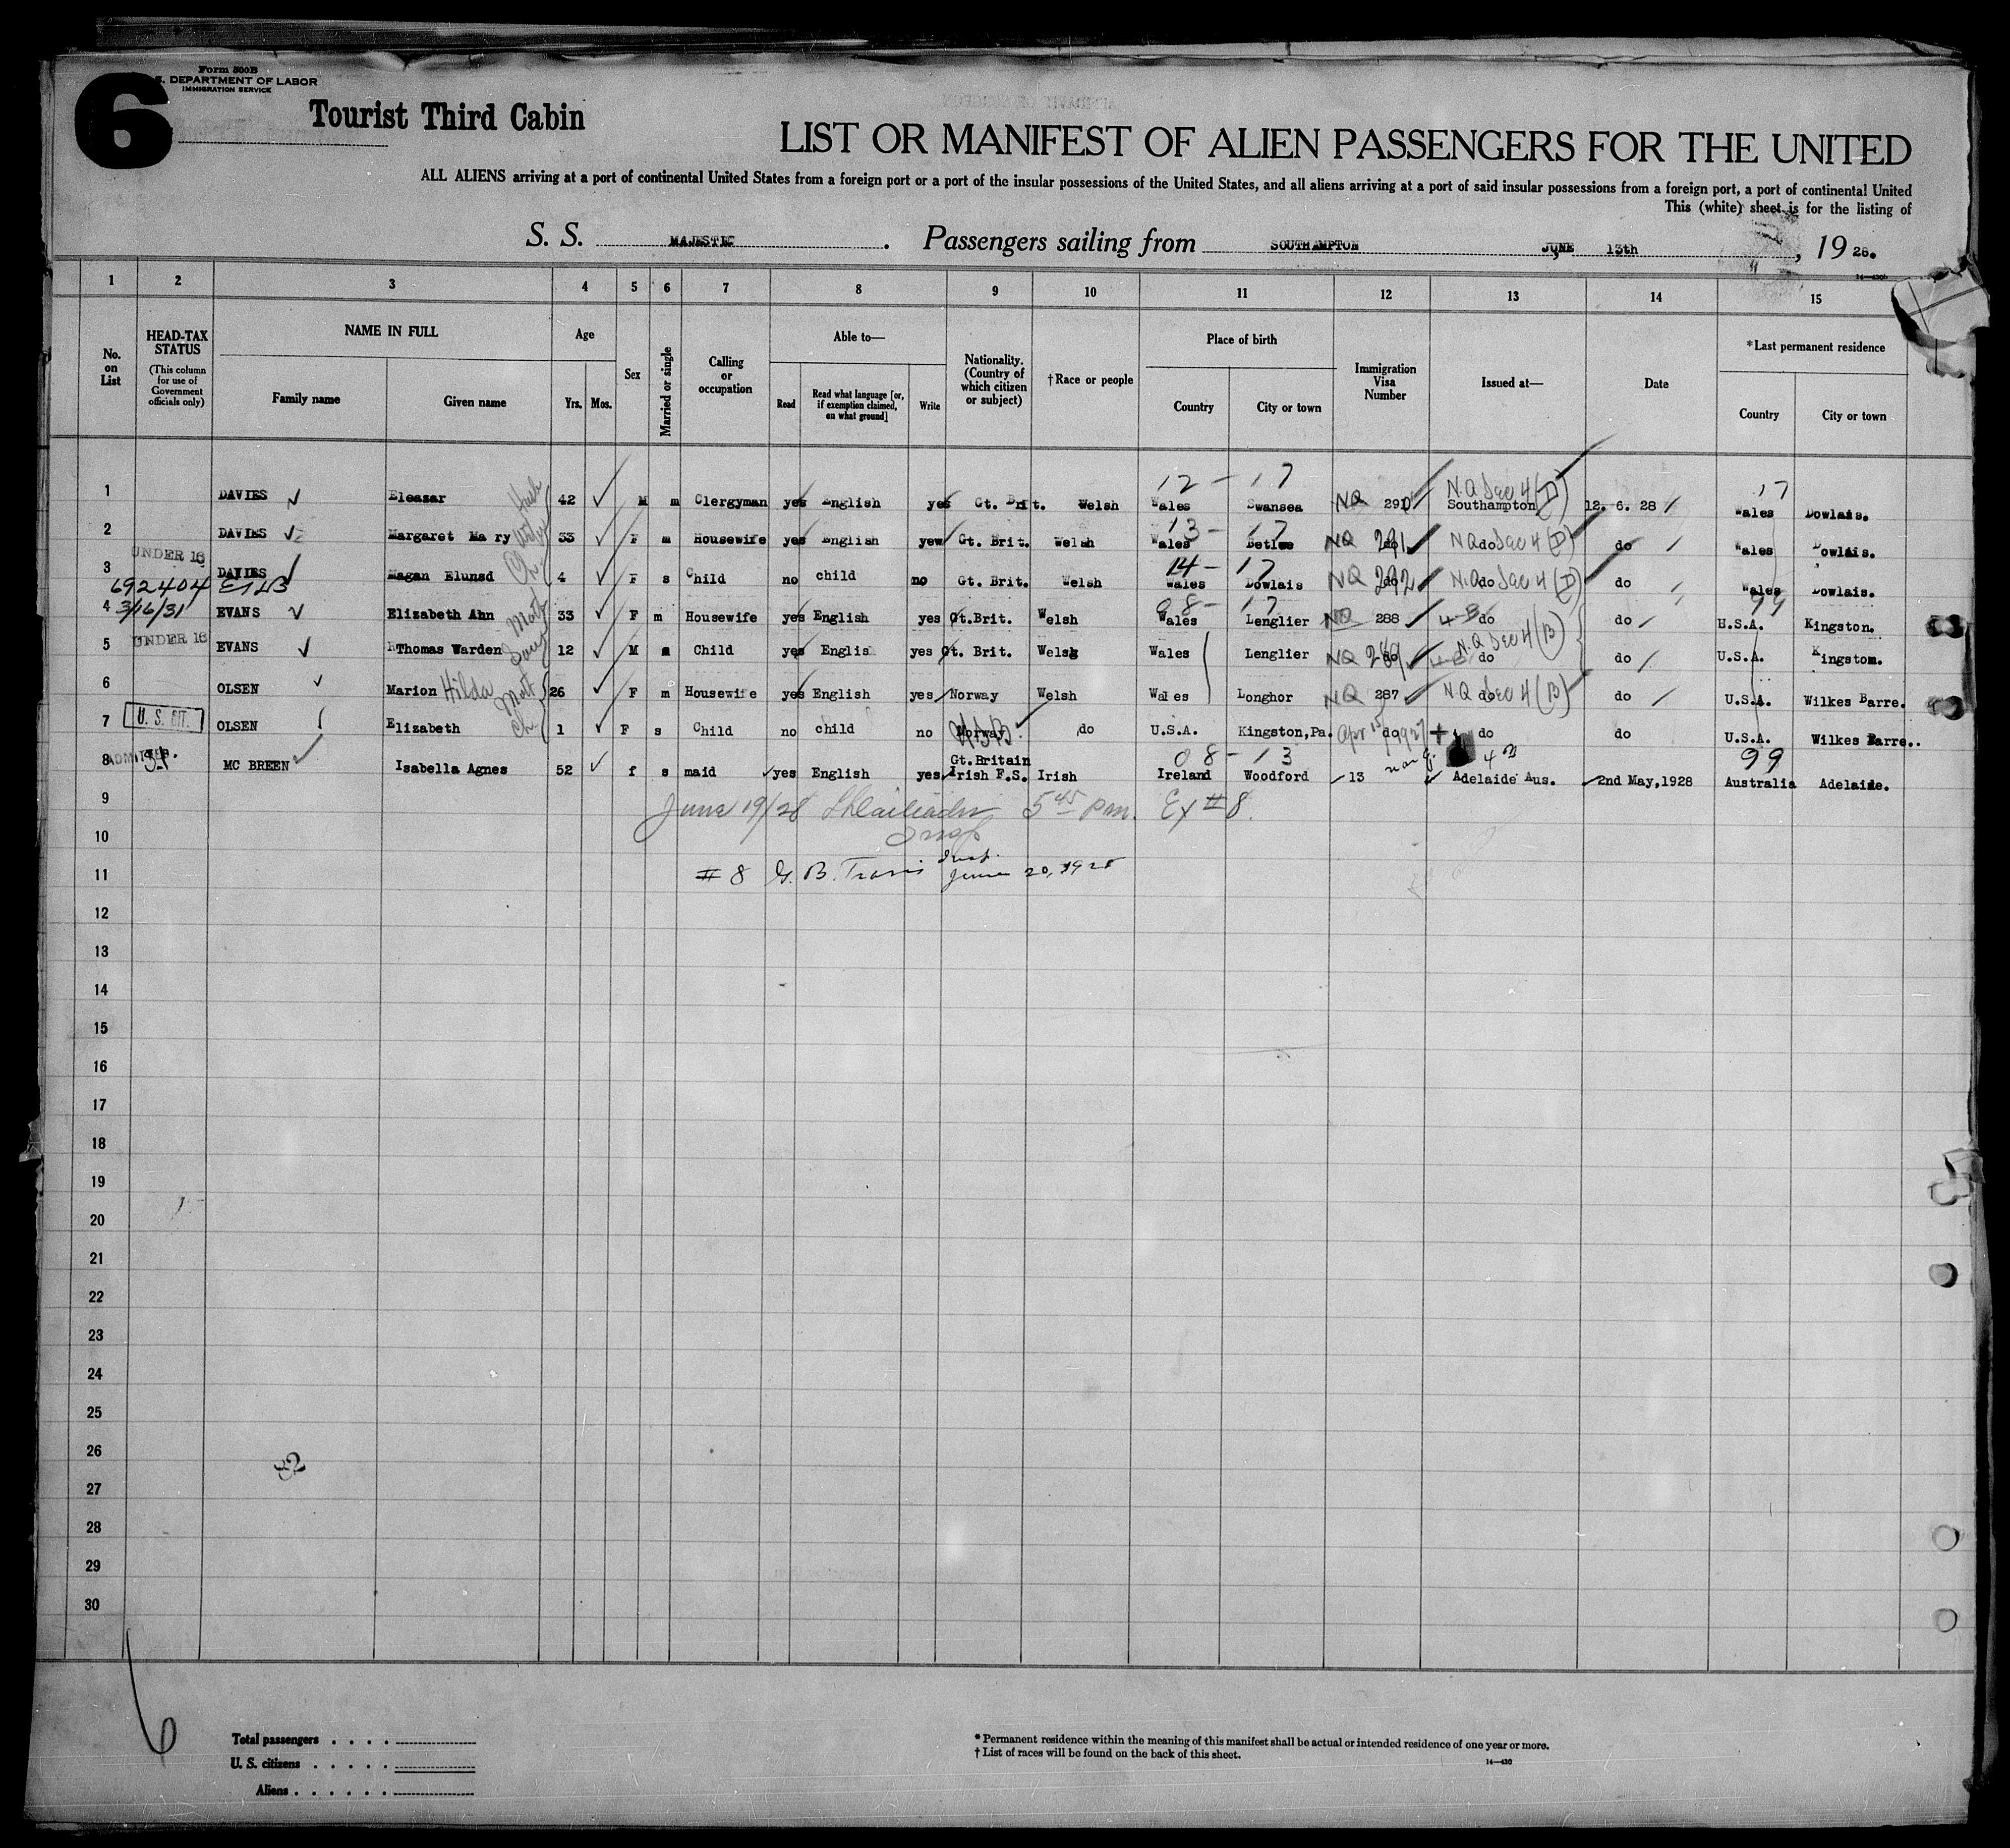 6
Form 500B
U. S. DEPARTMENT OF LABOR
IMMIGRATION SERVICE
Tourist Third Cabin
LIST OR MANIFEST OF ALIEN PASSENGERS FOR THE UNITED
ALL ALIENS arriving at a port of continental United States from a foreign port or a port of the insular possessions of the United States, and all aliens arriving at a port of said insular possessions from a foreign port, a port of continental United
This (white) sheet is for the listing of
S. S. MAJESTIC. Passengers sailing from SOUTHAMPTON JUNE 13th, 19 28.
1 2 3 4 5 6 7 8 9 10 11 12 13 14 15
No. on List
HEAD-TAX STATUS
(This column for use of Government officials only)
NAME IN FULL
Family name Given name
Age
Yrs. Mos.
Sex
Married or single
Calling or occupation
Able to—
Read Read what language [or, if exemption claimed, on what ground] Write
Nationality. (Country of which citizen or subject)
†Race or people
Place of birth
Country City or town
Immigration Visa Number
Issued at—
Date
*Last permanent residence
Country City or town
12 - 17 N Q Sec 4 (D) 17
1 DAVIES Eleazar 42 M m Clergyman yes English yes Gt. Brit. Welsh Wales Swansea NQ 290 Southampton 12. 6. 28 Wales Dowlais.
13 - 17
2 DAVIES Margaret Mary Wife 33 F m Housewife yes English yes Gt. Brit. Welsh Wales NQ 291 NQ do Sec 4 (D) do Wales Dowlais.
UNDER 16 14 - 17
3 DAVIES Magan Elunsd Ch 4 F s Child no child no Gt. Brit. Welsh Wales Dowlais NQ 292 N.Q do Sec 4 (D) do Wales Dowlais.
692404
3/16/31 08 - 17 99
4 EVANS Elizabeth Ann Moth 33 F m Housewife yes English yes Gt.Brit. Welsh Wales Lenglier NQ 288 4-B do do U.S.A. Kingston.
UNDER 16 NQ Sec 4 (B)
5 EVANS Thomas Warden 12 M Child yes Englis yes Gt. Brit. Welsh Wales Lenglier NQ 289 do do U.S.A. Kingston.
6 OLSEN Marion Hilda Moth 26 F m Housewife yes English yes Norway Welsh Wales Longhor NQ 287 NQ do Sec 4 (B) do U.S.A. Wilkes Barre.
7 U. S. CIT. OLSEN Elizabeth Ch 1 F s Child no child no Norway do U.S.A. Kingston,Pa. Apr 15 1927 do do do U.S.A. Wilkes Barre..
ADMITTED Gt.Britain 08 - 13 non q. 99
8 MC BREEN Isabella Agnes 52 f s maid yes English yes Irish F.S. Irish Ireland Woodford 13 Adelaide Aus. 2nd May,1928 Australia Adelaide.
9 June 19/28 5 45 pm. Ex # 8.
10 Insp
11 # 8 G. B. Travis Insp. June 20, 1928
12
13
14
15
16
17
18
19
20
21
22
23
24
25
26
27
28
29
30
6
Total passengers . . . .
U. S. citizens . . . . .
Aliens . . . . . .
* Permanent residence within the meaning of this manifest shall be actual or intended residence of one year or more.
† List of races will be found on the back of this sheet.
14—430